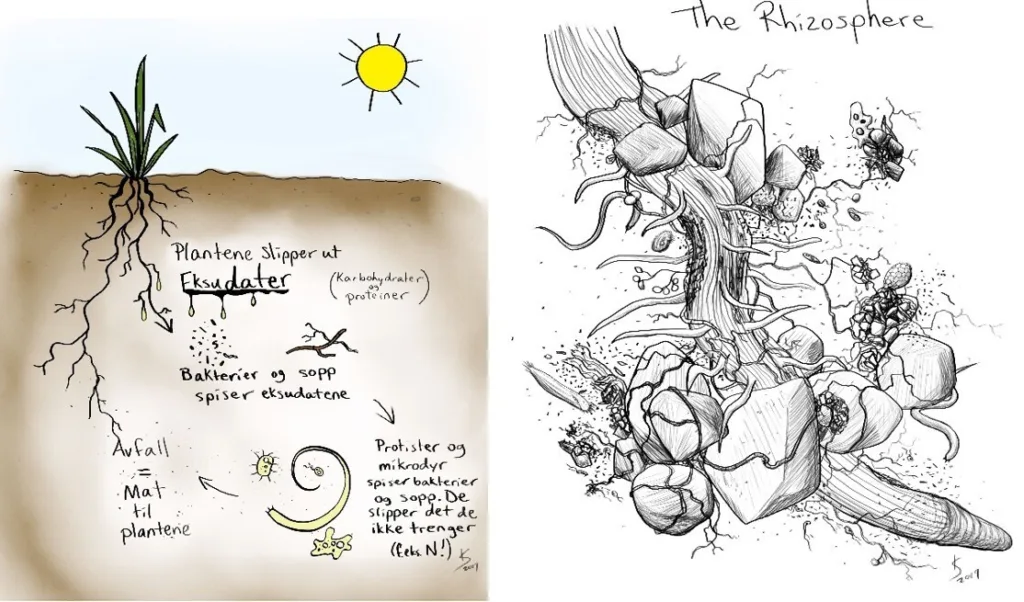 Plantene slipper ut
Eksudater
(Karbohydrater
og
proteiner)
Bakterier og sopp
spiser eksudatene
Protister og
mikrodyr
spiser bakterier
og sopp. De
slipper det de
ikke trenger
(f.eks. N!)
Avfall
=
Mat
til
plantene
KS
2017
The Rhizosphere
KS
2017